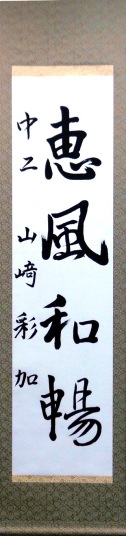 恵風和暢
中二 山﨑彩加